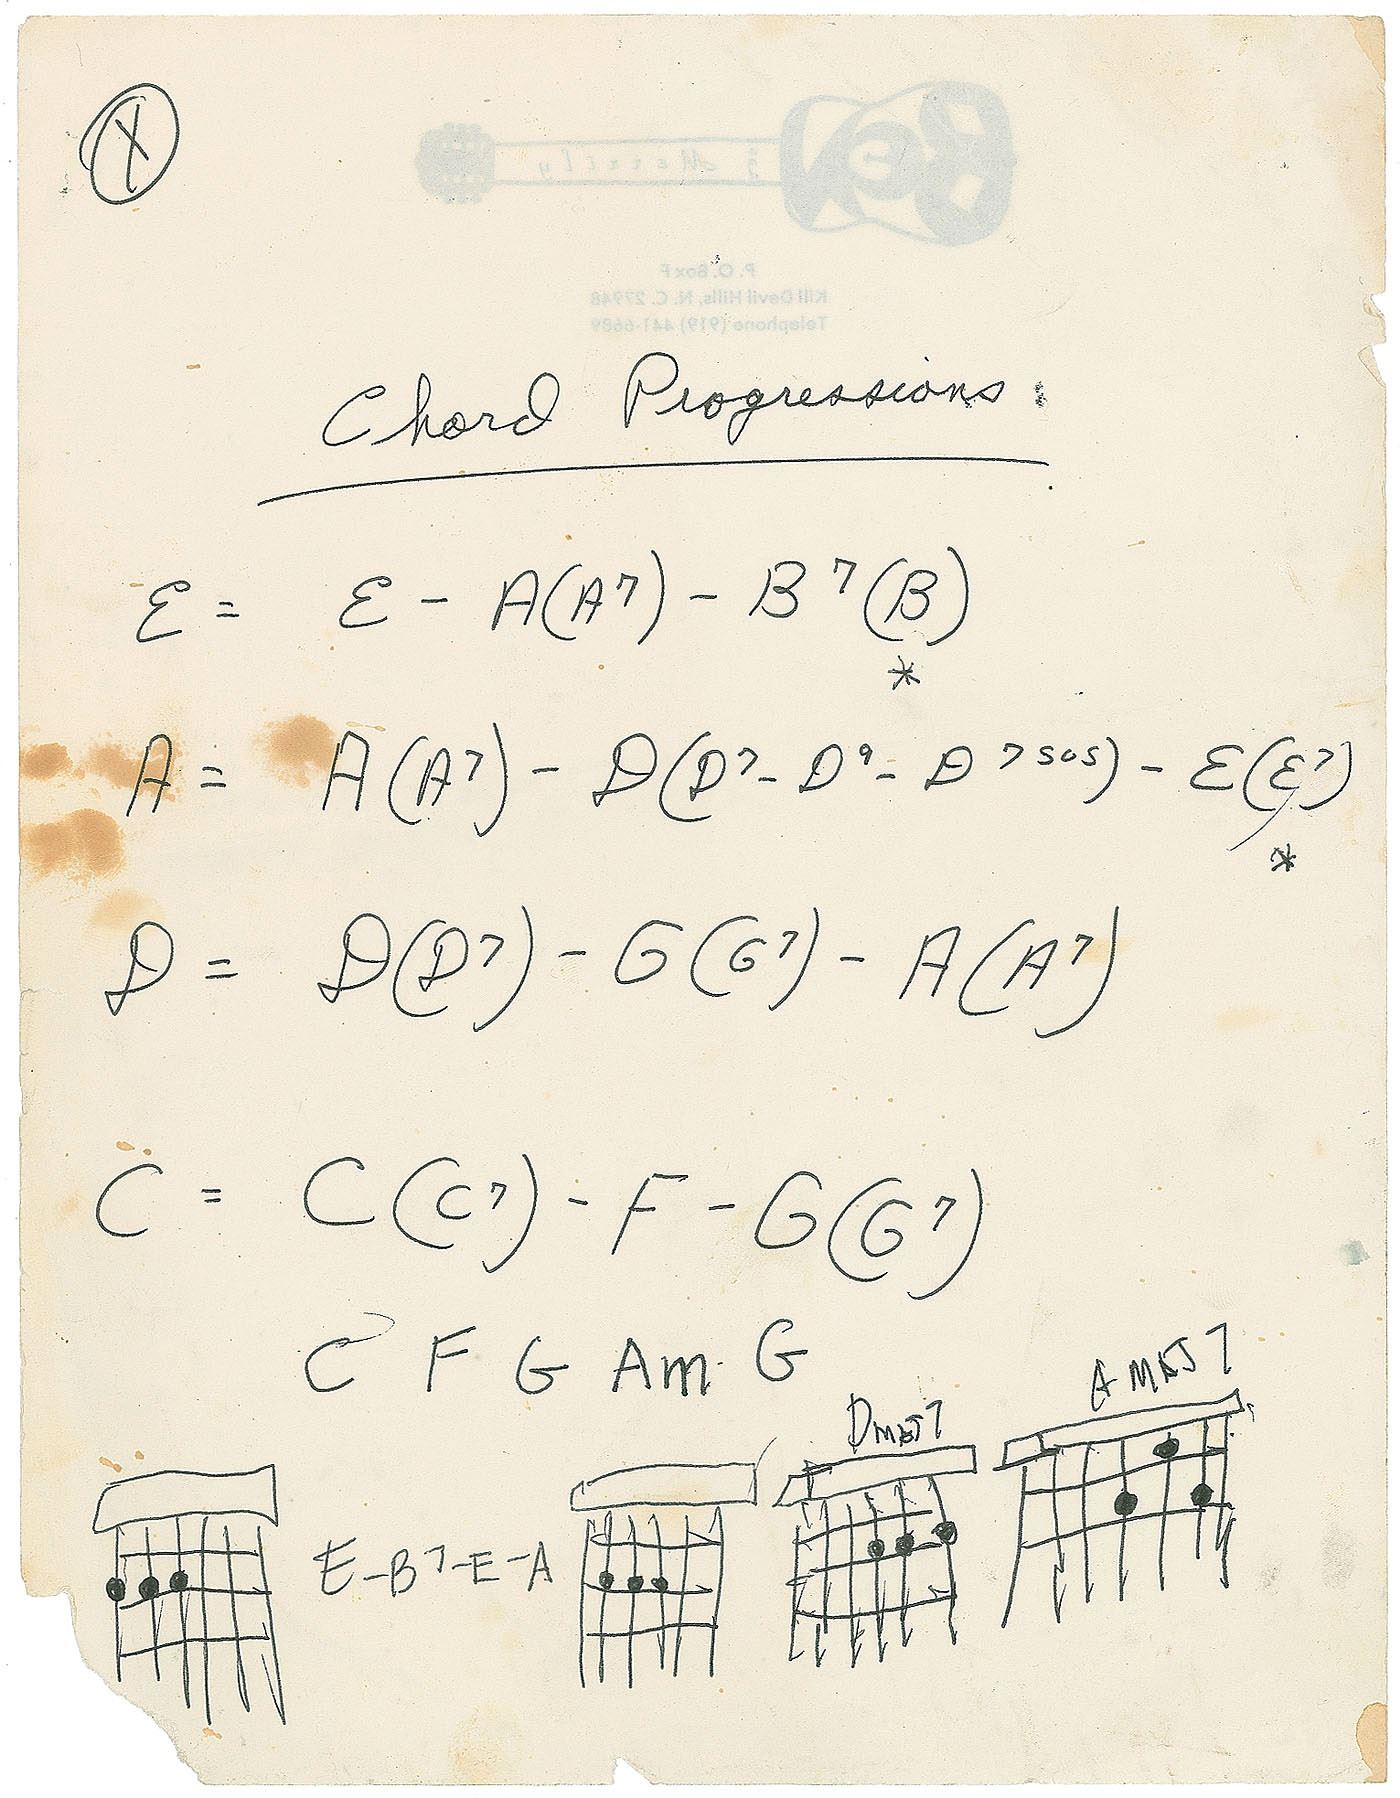 X
Ben
g Merrily
P. O. Box F
Kill Devil Hills, N. C. 27948
Telephone (919) 441-6689
Chord Progressions:
E = E - A(A7) - B7(B)
*
A = A(A7) - D(D7- D9- D7sus) - E(E7)
*
D = D(D7) - G(G7) - A(A7)
C = C(C7) - F - G(G7)
C F G Am G
DMAJ7 AMAJ7
E-B7-E-A